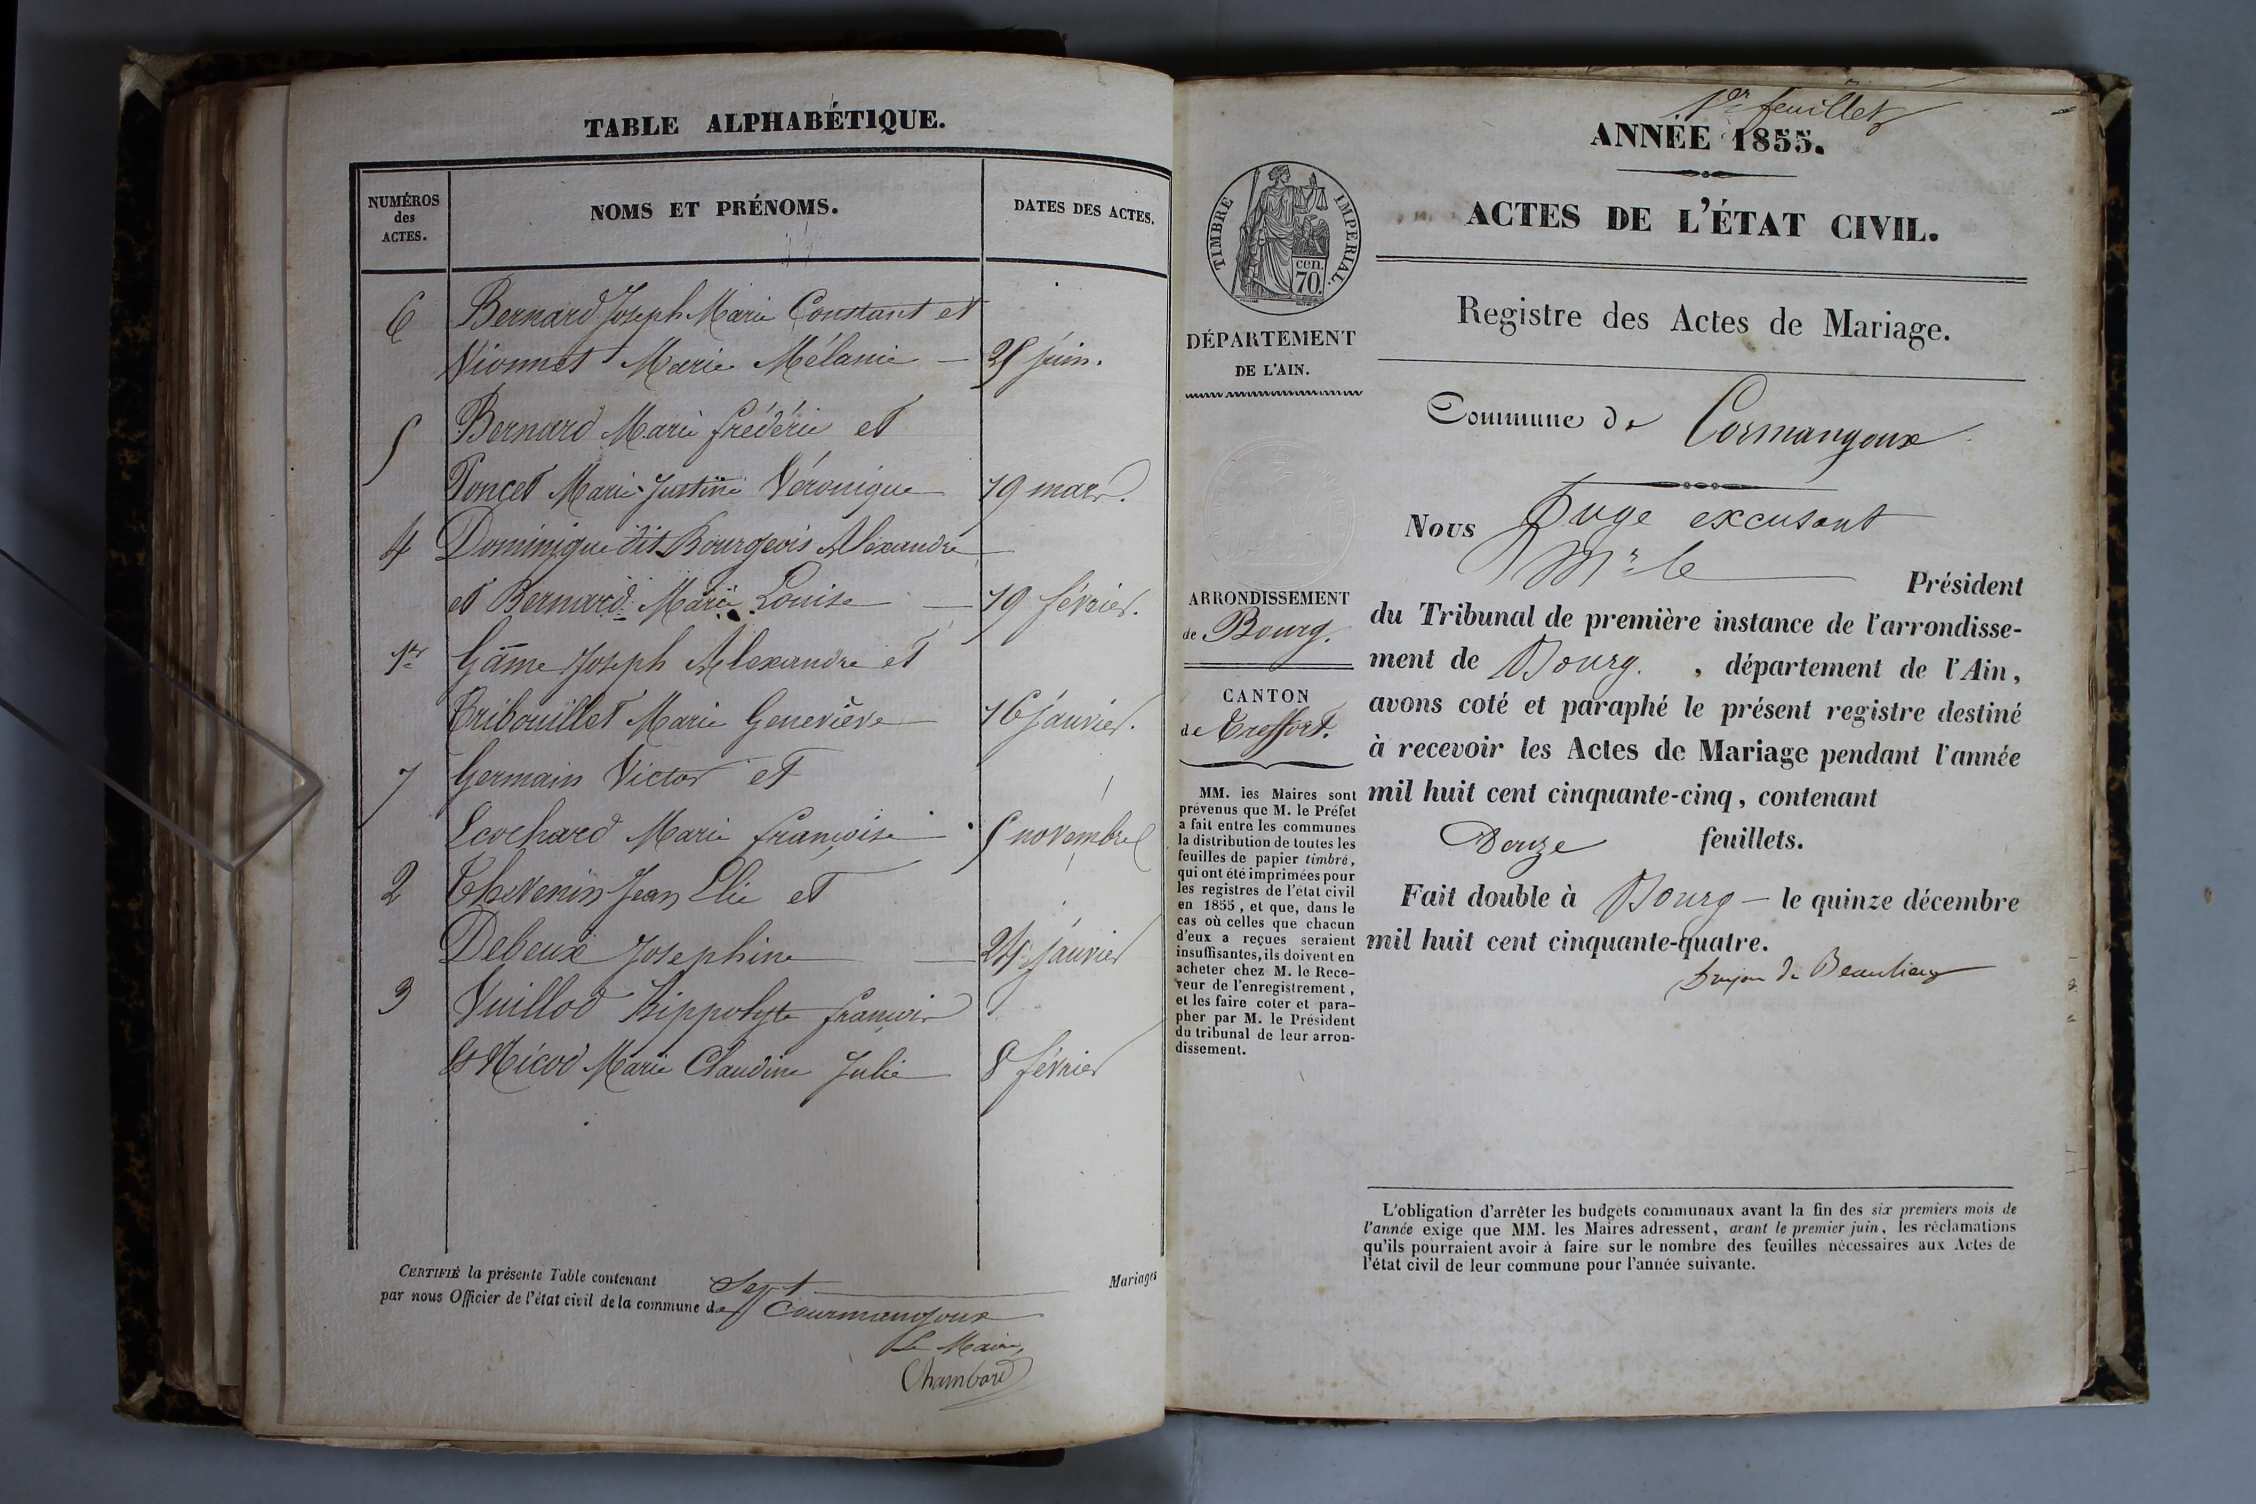 TABLE ALPHABÉTIQUE.
NUMÉROS des ACTES.
NOMS ET PRÉNOMS.
DATES DES ACTES.
6 Bernard Joseph Marie Constant et
Vionnet Marie Mélanie — 25 juin.
5 Bernard Marie frédéric et
Poncet Marie Justine Véronique 19 mars.
4 Dominique dit Bourgeois Alexandre
et Bernard Marie Louise — 19 février.
1er Gâme Joseph Alexandre et
Tribouillet Marie Geneviève 16 janvier.
7 Germain Victor et
Lcochard Marie françoise 5 novembre
2 Thevenin Jean Elie et
Debeux Josephine — 24 janvier
3 Vuillod Hippolyte françois
et Nicod Marie Claudine Julie 8 février
CERTIFIÉ la présente Table contenant Sept Mariages
par nous Officier de l'état civil de la commune de Courmangoux
Le Maire,
Chambard
1er feuillet
ANNÉE 1855.
TIMBRE IMPERIAL.
cen.
70.
ACTES DE L'ÉTAT CIVIL.
Registre des Actes de Mariage.
DÉPARTEMENT
DE L'AIN.
ARRONDISSEMENT
de Bourg.
CANTON
de Treffort.
MM. les Maires sont
prévenus que M. le Préfet
a fait entre les communes
la distribution de toutes les
feuilles de papier timbré,
qui ont été imprimées pour
les registres de l'état civil
en 1855, et que, dans le
cas où celles que chacun
d'eux a reçues seraient
insuffisantes, ils doivent en
acheter chez M. le Rece-
veur de l'enregistrement,
et les faire coter et para-
pher par M. le Président
du tribunal de leur arron-
dissement.
Commune de Cormangoux
Nous Juge excusant
Mr le Président
du Tribunal de première instance de l'arrondisse-
ment de Bourg. , département de l'Ain,
avons coté et paraphé le présent registre destiné
à recevoir les Actes de Mariage pendant l'année
mil huit cent cinquante-cinq, contenant
Douze feuillets.
Fait double à Bourg — le quinze décembre
mil huit cent cinquante-quatre.
de Beaulieu
L'obligation d'arrêter les budgets communaux avant la fin des six premiers mois de
l'année exige que MM. les Maires adressent, avant le premier juin, les réclamations
qu'ils pourraient avoir à faire sur le nombre des feuilles nécessaires aux Actes de
l'état civil de leur commune pour l'année suivante.